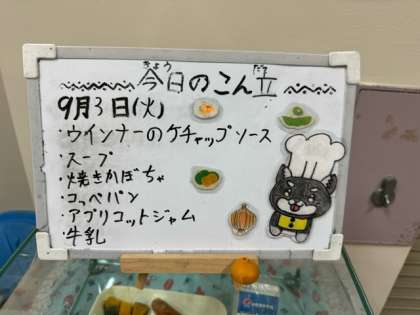 今日のこん立
きょう だて
9月3日(火)
・ウインナーのケチャップソース
・スープ
・焼きかぼちゃ
・コッペパン
・アプリコットジャム
・牛乳